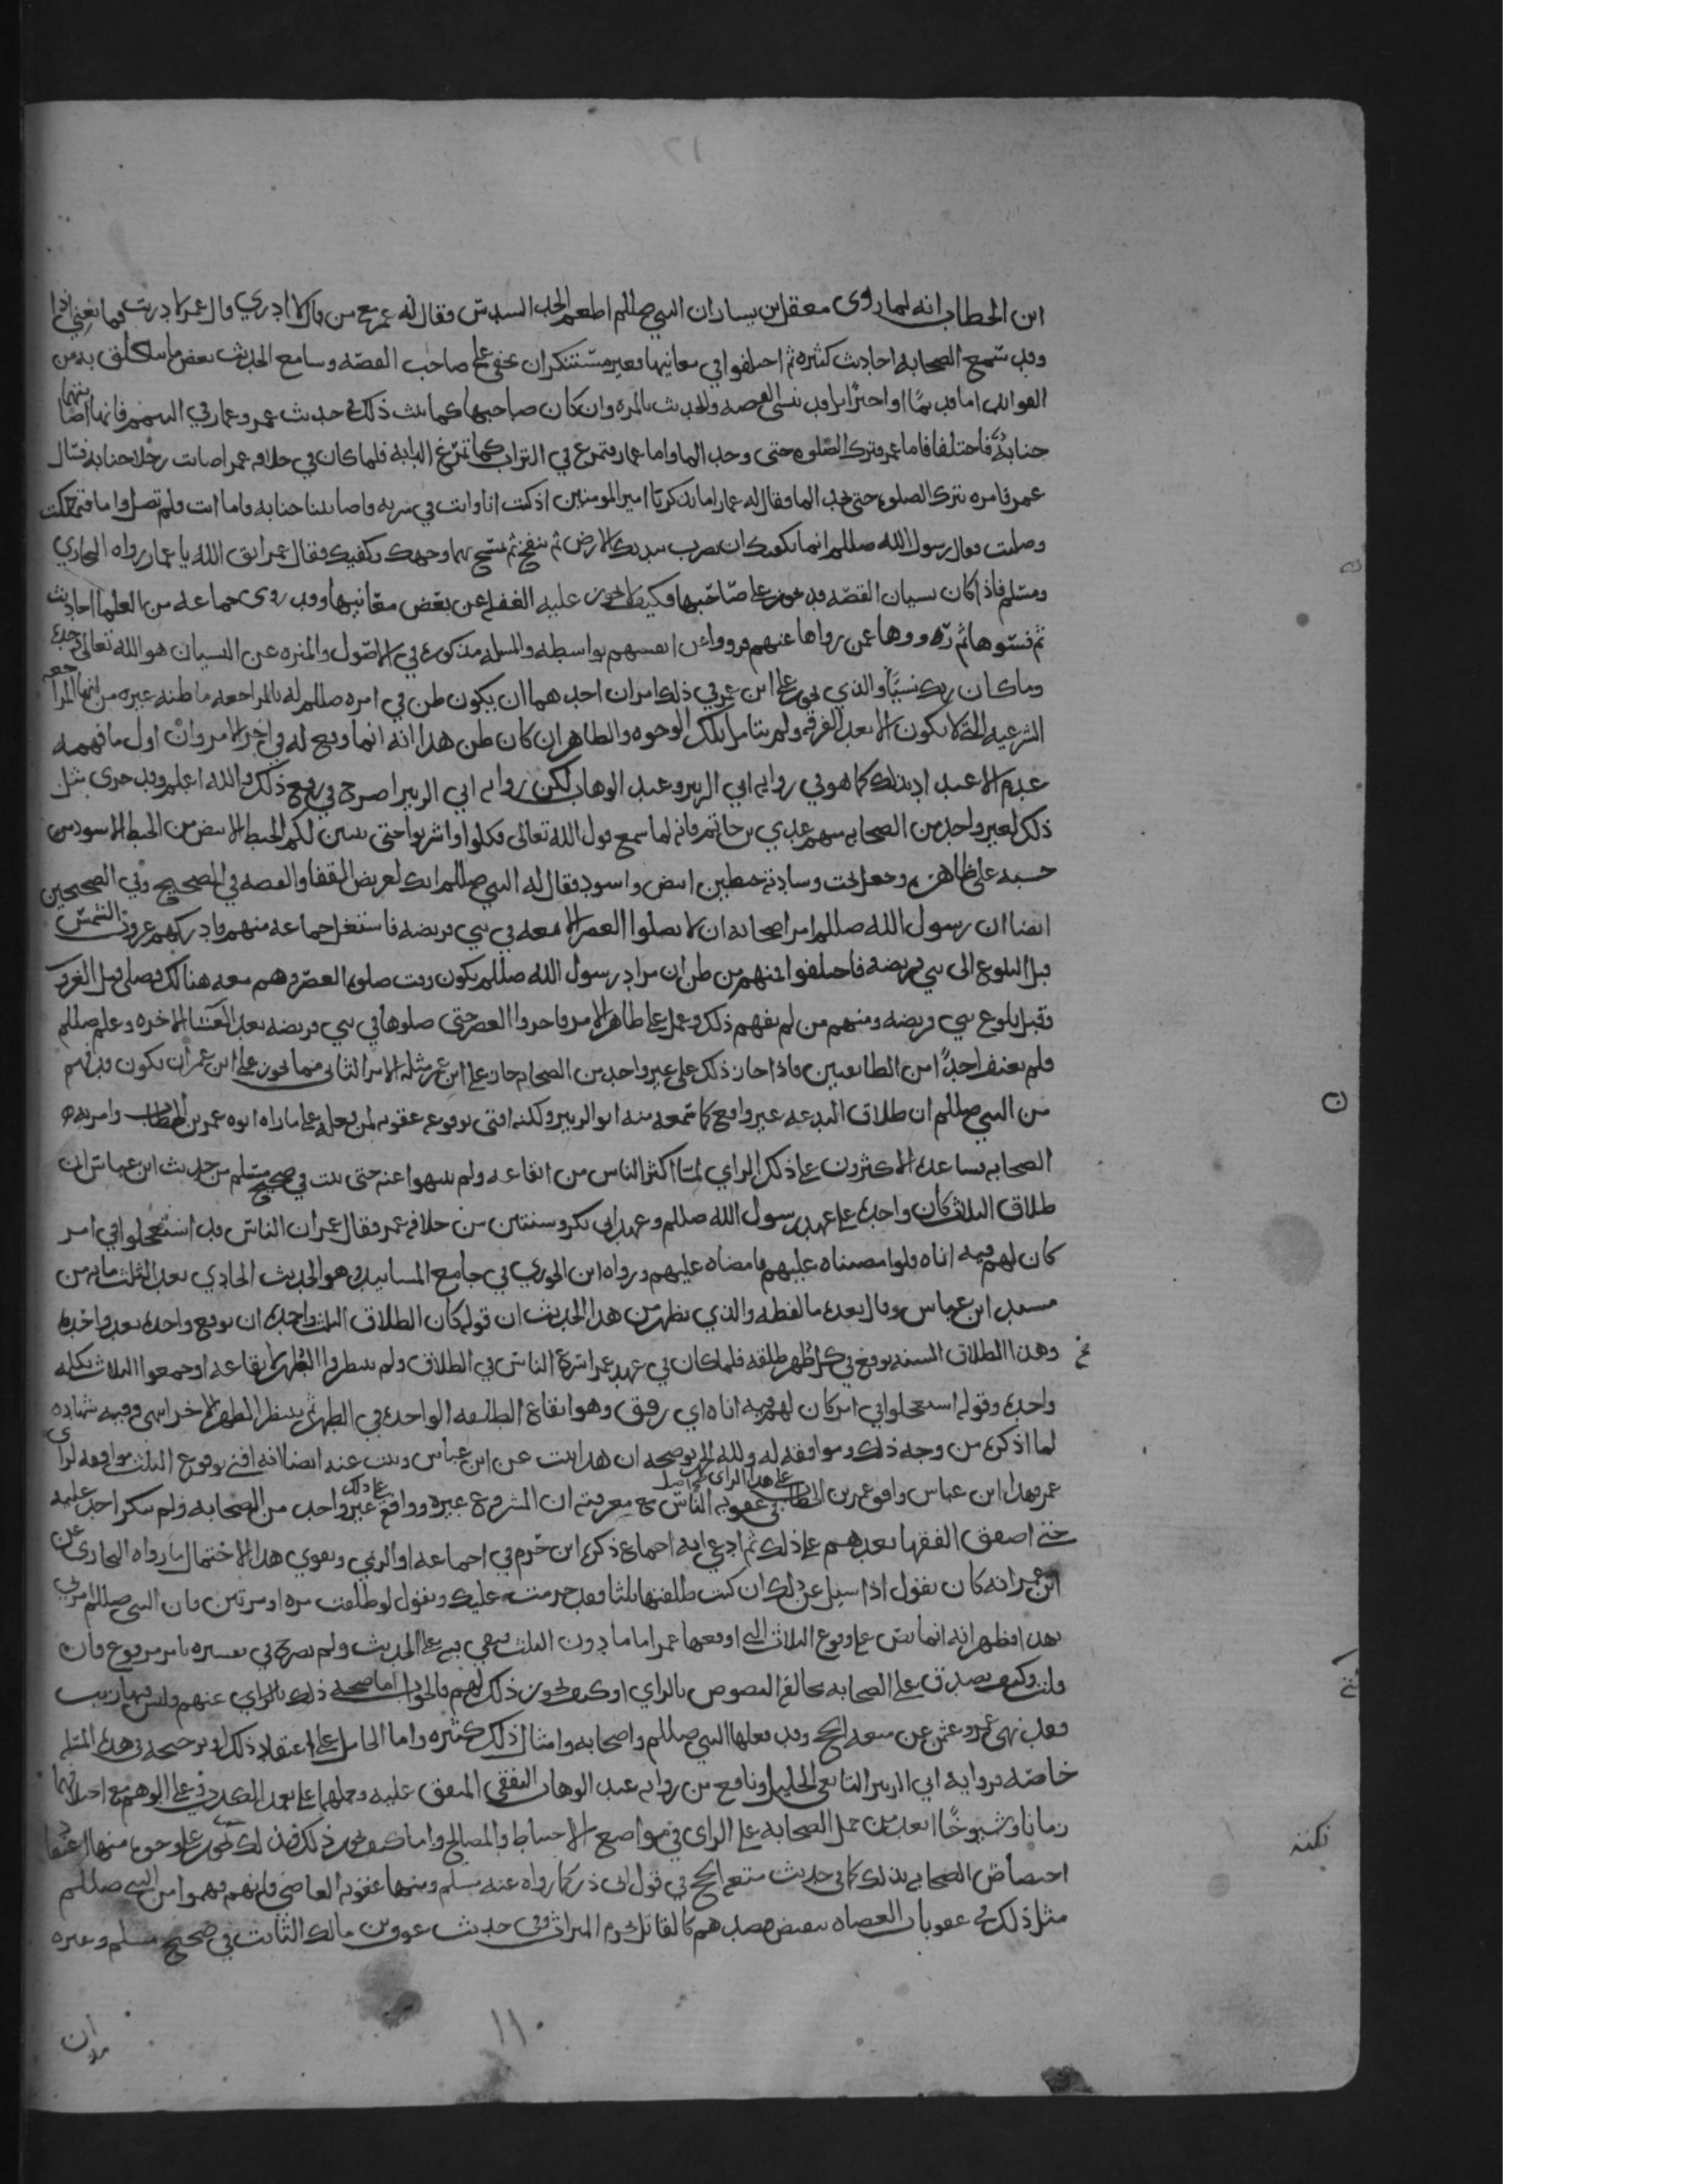 ابن الخطاب انه لما روى معقل بن يسار ان النبي صللم اطعم الجد السدس فقال له عمر مع من قال لا ادري قال عمر لا دريت فما تغني اذا
وقد سمع الصحابه احاديث كثيره ثم اختلفوا في معانيها فغير مستنكر ان يخفى على صاحب القصه وسامع الحديث بعض ما يتعلق به من
الفوائد اما قد بينا او اخترا بل قد ينسى القصه والحديث بالمره وان كان صاحبها كما ثبت ذلك في حديث عمر وعمار في التيمم فانهما اصابتهما
جنابة فاختلفا فاما عمر فترك الصلوه حتى وجد الما واما عمار فتمرغ في التراب كما تمرغ الدابه فلما كان في خلافه عمر اصابت رجلا جنابه فسال
عمر فامره بترك الصلوه حتى يجد الما فقال له عمار اما تذكر يا امير المومنين اذ كنت انا وانت في سريه فاصابتنا جنابه فاما انت فلم تصل واما انا فتمعكت
وصليت فقال رسول الله صللم انما يكفيك ان تضرب بيديك الارض ثم تنفخ ثم تمسح بهما وجهك وكفيك فقال عمر اتق الله يا عمار رواه البخاري
ومسلم فاذا كان نسيان القصه قد يجوز على صاحبها فكيف لا يجوز عليه الغفله عن بعض معانيها وقد روى جماعه من العلما احاديث
ثم نسوها ثم رووها عمن رواها عنهم فرووا عن انفسهم بواسطه والمسله مذكوره في الاصول والمنزه عن النسيان هو الله تعالى وحده
وما كان ربك نسيا والذي يجوز على ابن عمر في ذلك امران احدهما ان يكون ظن في امره صللم له بالمراجعه ما ظنه غيره من انها المراجعه
الشرعيه التي لا يكون الا بعد الفرقه ولم يتامل تلك الوجوه والظاهر ان كان ظن هذا انه انما وقع له في اخر الامر وان اول ما فهمه
عدم الاعتداد بذلك كما هو في روايه ابي الزبير وعبد الوهاب لكن روايه ابي الزبير اصرح في رفع ذلك والله اعلم وقد جرى مثل
ذلك لغير واحد من الصحابه منهم عدي بن حاتم فانه لما سمع قول الله تعالى وكلوا واشربوا حتى يتبين لكم الخيط الابيض من الخيط الاسود من
حسبه على ظاهره وجعل تحت وسادته خيطين ابيض واسود فقال له النبي صللم انك لعريض القفا والقصه في الصحيح وفي الصحيحين
ايضا ان رسول الله صللم امر اصحابه ان لا يصلوا العصر الا معه في بني قريضه فاشتغل جماعه منهم فادركهم غروب الشمس
قبل البلوغ الى بني قريضه فاختلفوا فمنهم من ظن ان مراد رسول الله صللم يكون وقت صلوه العصر وهم معه هنالك فصلى قبل الغروب
وقبل بلوغ بني قريضه ومنهم من لم يفهم ذلك وعمل على ظاهر الامر فاخروا العصر حتى صلوها في بني قريضه بعد العشا الاخره وعلم صللم
فلم يعنف احدا من الطائفتين فاذا جاز ذلك على غير واحد من الصحابه جاز على ابن عمر مثله الامر الثاني مما يجوز على ابن عمر ان يكون قد فهم
من النبي صللم ان طلاق البدعه غير واقع كما سمعه منه ابو الزبير ولكنه افتى بوقوعه عقوبه لمن فعله على ما راه ابوه عمر بن الخطاب وامر به
الصحابه فساعده الاكثرون على ذلك الراي لما اكثر الناس من ايقاعه ولم ينتهوا عنه حتى ثبت في صحيح مسلم من حديث ابن عباس ان
طلاق الثلاث كان واحده على عهد رسول الله صللم وعهد ابي بكر وسنتين من خلافه عمر فقال عمر ان الناس قد استعجلوا في امر
كان لهم فيه اناه فلو امضيناه عليهم فامضاه عليهم ورواه ابن الجوزي في جامع المسانيد وهو الحديث الحادي بعد الثلثمايه من
مسند ابن عباس وقال بعده ما لفظه والذي يظهر من هذا الحديث ان قوله كان الطلاق الثلث واحده ان يوقع واحده بعد واحده
وهذا الطلاق السنه يوقع في كل طهر طلقه فلما كان في عهد عمر اسرع الناس في الطلاق ولم ينتظروا الطهر لايقاعه او جمعوا الثلاث بكلمه
واحده وقوله استعجلوا في امر كان لهم فيه اناه اي رفق وهو ايقاع الطلقه الواحده في الطهر ثم ينتظر الطهر الاخر انتهى وفيه شهاده
لما اذكره من وجه ذلك وموافقه له ولله الحمد يوضحه ان هذا ثبت عن ابن عباس وثبت عنه ايضا انه افتى بوقوع الثلث موافقه لراي
عمر فهذا ابن عباس وافق عمر بن الخطاب على هذا الراي في اصل
في عقوبه الناس مع معرفته ان المشروع غيره ووافق على ذلك غير واحد من الصحابه ولم ينكر احد عليه
حتى اصفق الفقها بعدهم على ذلك ثم ادعي انه اجماع ذكره ابن حزم في اجماعه او الريمي ويقوي هذا الاحتمال ما رواه البخاري عن
ابن عمر انه كان يقول اذا سيل عن ذلك ان كنت طلقتها ثلثا فقد حرمت عليك ويقول لو طلقت مره او مرتين فان النبي صللم امرني
بهذا فظهر انه انما نص على وقوع الثلاث التي اوقعها عمر اما ما دون الثلث فبقي فيه على الحديث ولم يصرح في تفسيره بامر مرفوع فان
قلت وكيف يصدق على الصحابه مخالفه النصوص بالراي او كيف يجوز ذلك لهم فالجواب اما صحه ذلك بالراي عنهم وليس فيها ريب
فقد نهى عمر وعثمن عن متعه الحج وقد فعلها النبي صللم واصحابه وامثال ذلك كثيره واما الحامل على اعتقاد ذلك او ترجيحه في هذه المسله
خاصه فروايه ابي الزبير التابعي الجليل ونافع من روايه عبد الوهاب الثقفي المتفق عليه وحملهما على تعمد الكذب او على الوهم مع اختلافهما
زمانا وشيوخا ابعد من حمل الصحابه على الراي في مواضع الاحتياط والمصالح واما كيف يجوز ذلك فذلك يجوز على وجوه منها اعتقاد
اختصاص الصحابه بذلك كما في حديث متعه الحج في قول ابي ذر كما رواه عنه مسلم ومنها عقوبه العاصي فانهم فهموا من النبي صللم
مثل ذلك في عقوبات العصاه بنقيض قصدهم كالقاتل يحرم الميراث وفي حديث عوف بن مالك الثابت في صحيح مسلم وغيره
١١٠